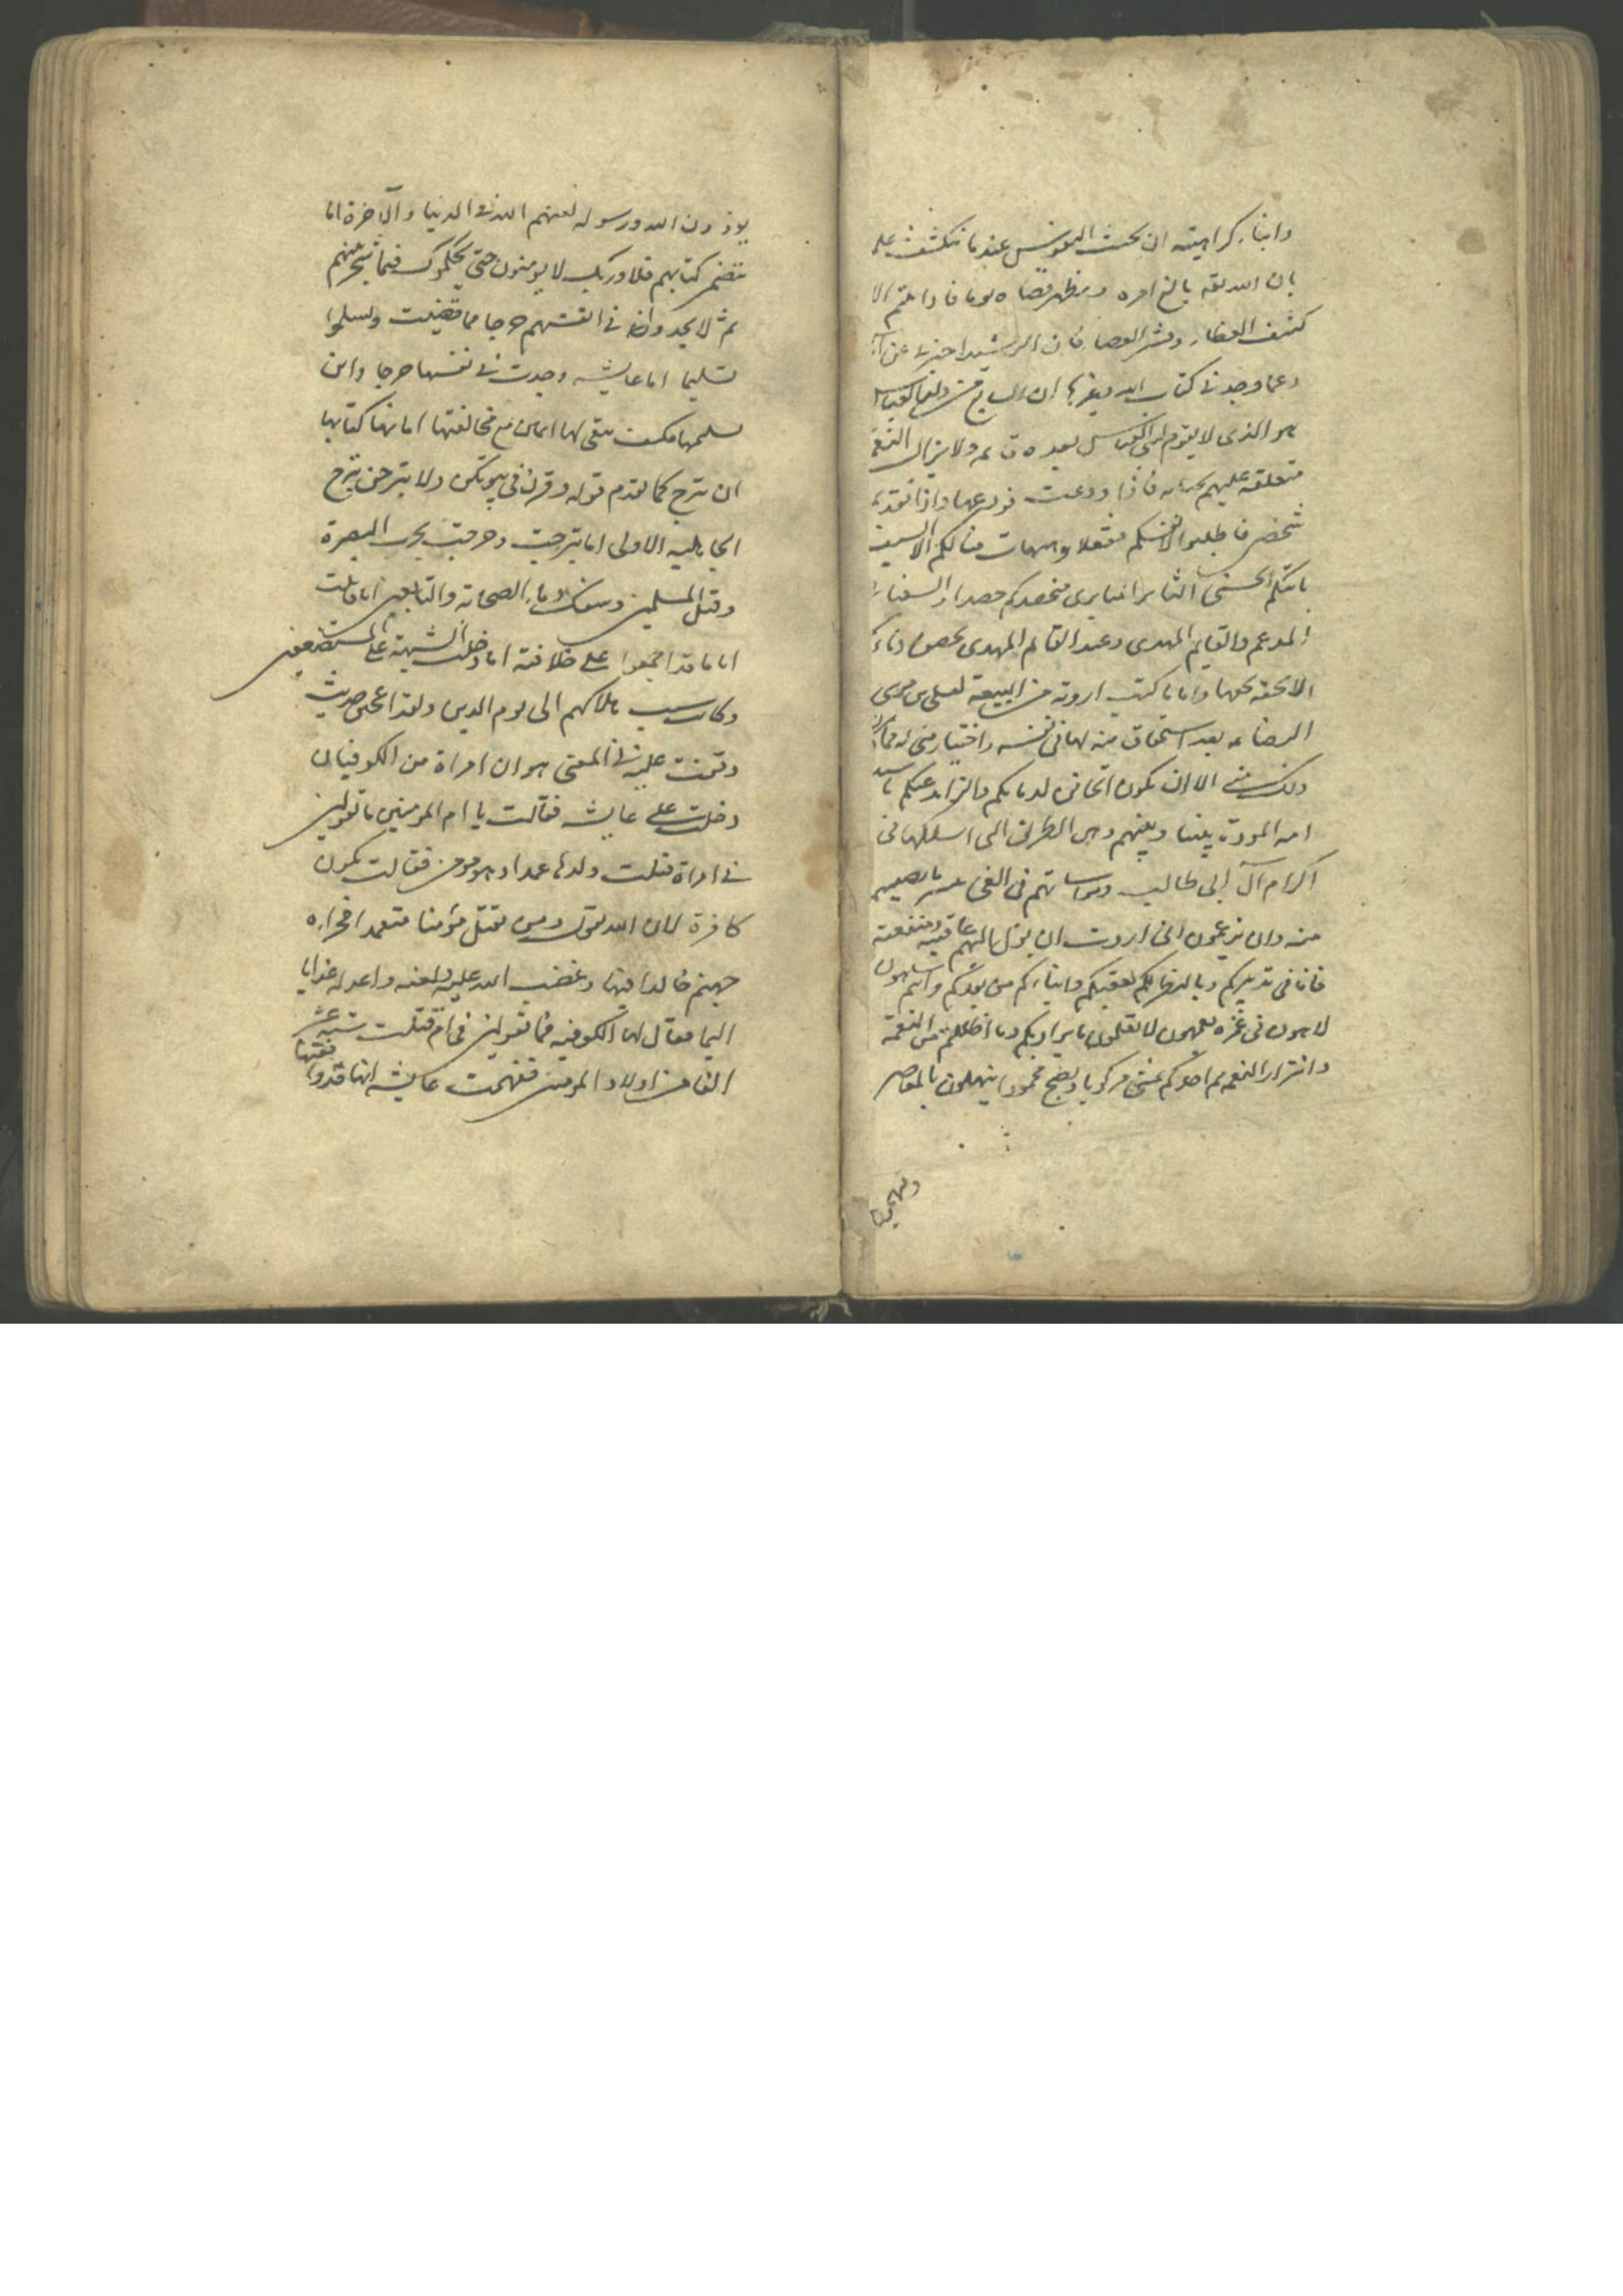 وابناء كراهية ان تحنث النفوس عندما تنكشف علم
بان الله تعه بالغ امره ومظهر قضاه يوما فاذا بيتم الا
كشف الغطاء وقشر العصا فان الرشيد اخبرنى عن آ
وعما وجد فى كتاب ان السابع من ولد العباس
هو الذى لا يقوم لبنى العباس بعده قائمه ولا يزال النعم
متعلقة عليهم بحياته فاذا ودعت فودعها واذا فقدتم
شخصى فاطلبوا لانفسكم معقلا وهيهات مالكم الا السيف
ياتيكم الحسنى الثاير فيحصدكم حصدا والسفيانى
المرغم والقايم المهدى وعند القايم المهدى يحقن دماءكم
الا بحقه واما ما كنت اردته من البيعة لعلى بن موسى
الرضا بعد استحقاق منه لها فى نفسه واختيار منى له فما كان
ذلك منى الا ان يكون الحاقن لدمائكم والذايد عنكم باستد
امه المودة بيننا وبينهم وهى الطريق التى اسلكها فى
اكرام آل ابى طالب ومواساتهم فى الفئ بيسير ما يصيبهم
منه وان تزعمون انى اردت ان يؤل اليهم عاقبه ومنفعة
فانا فى تدبيركم وبالنظر لكم لعقبكم وابناءكم من بعدكم وانتم ساهون
لاهون فى غمرة تعمهون لا تعلمون ما يراد بكم وما اظللتم من النقمة
وابتزاز النعمه احدكم مركوبا ويصبح مخمورا
يوذون الله ورسوله لعنهم الله فى الدنيا والآخرة اما
تتضمن كتابهم فلا وربك لا يومنون حتى يحكموك فيما شجر بينهم
ثم لا يجدوا فى انفسهم حرجا مما قضيت ويسلموا
تسليما اما عايشه وجدت فى نفسها حرجا واين
تسليمها فكيف يبقى لها ايمان مع مخالفتها اما نهاها كتابها
ان تبرج كما تقدم قوله وقرن فى بيوتكن ولا تبرجن تبرج
الجاهليه الاولى اما تبرجت وخرجت بحرب البصرة
وقتل المسلمين وسفك دماء الصحابة والتابعين اما قاتلت
اماما قد اجمعوا على خلافته اما دخلت الشبهة على المستضعفين
وكانت سبب هلاكهم الى يوم الدين ولقد اعجبنى حديث
وقفت عليه فى المعنى هو ان امراة من الكوفيات
دخلت على عايشه فقالت يا ام المومنين ما تقولين
فى امراة قتلت ولدها عمدا وهو مومن فقالت تكون
كافرة لان الله يقول ومن يقتل مؤمنا متعمدا فجزاءه
جهنم خالدا فيها وغضب الله عليه ولعنه واعد له عذابا
اليما فقال لها الكوفيه فما تقولين فى ام قتلت ستة عشر
الفا من اولادها المومنين ففهمت عايشه انها